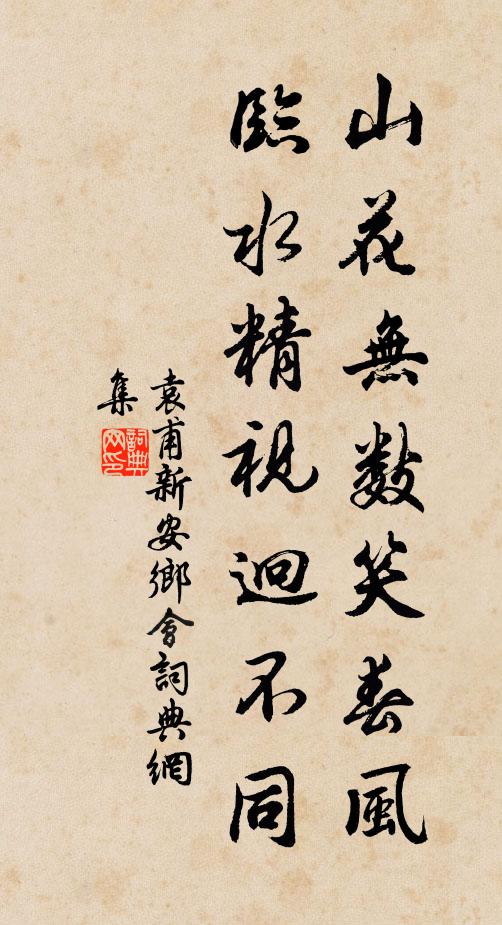 山花無數笑春風
臨水精視迥不同
袁甫新安鄉會詞典網
集
詞典網印